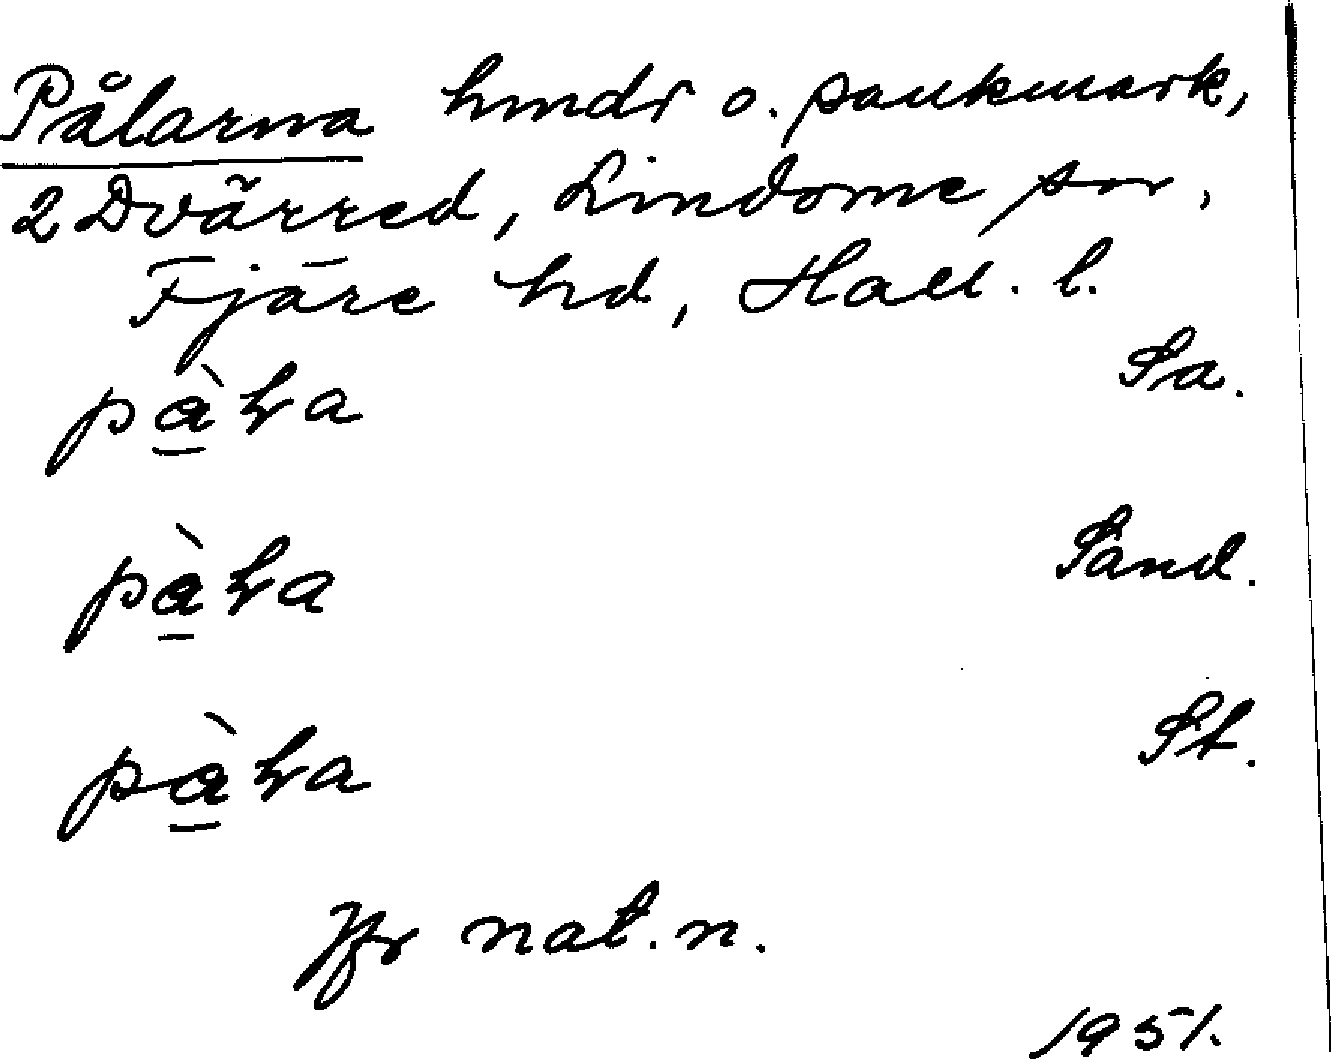 Pålarna hmdr o. sankmark,
2 Dvärred, Lindome sn,
Fjäre hd, Hall. l.
Sa.
Sand.
St.
Jfr nat. n.
1951.